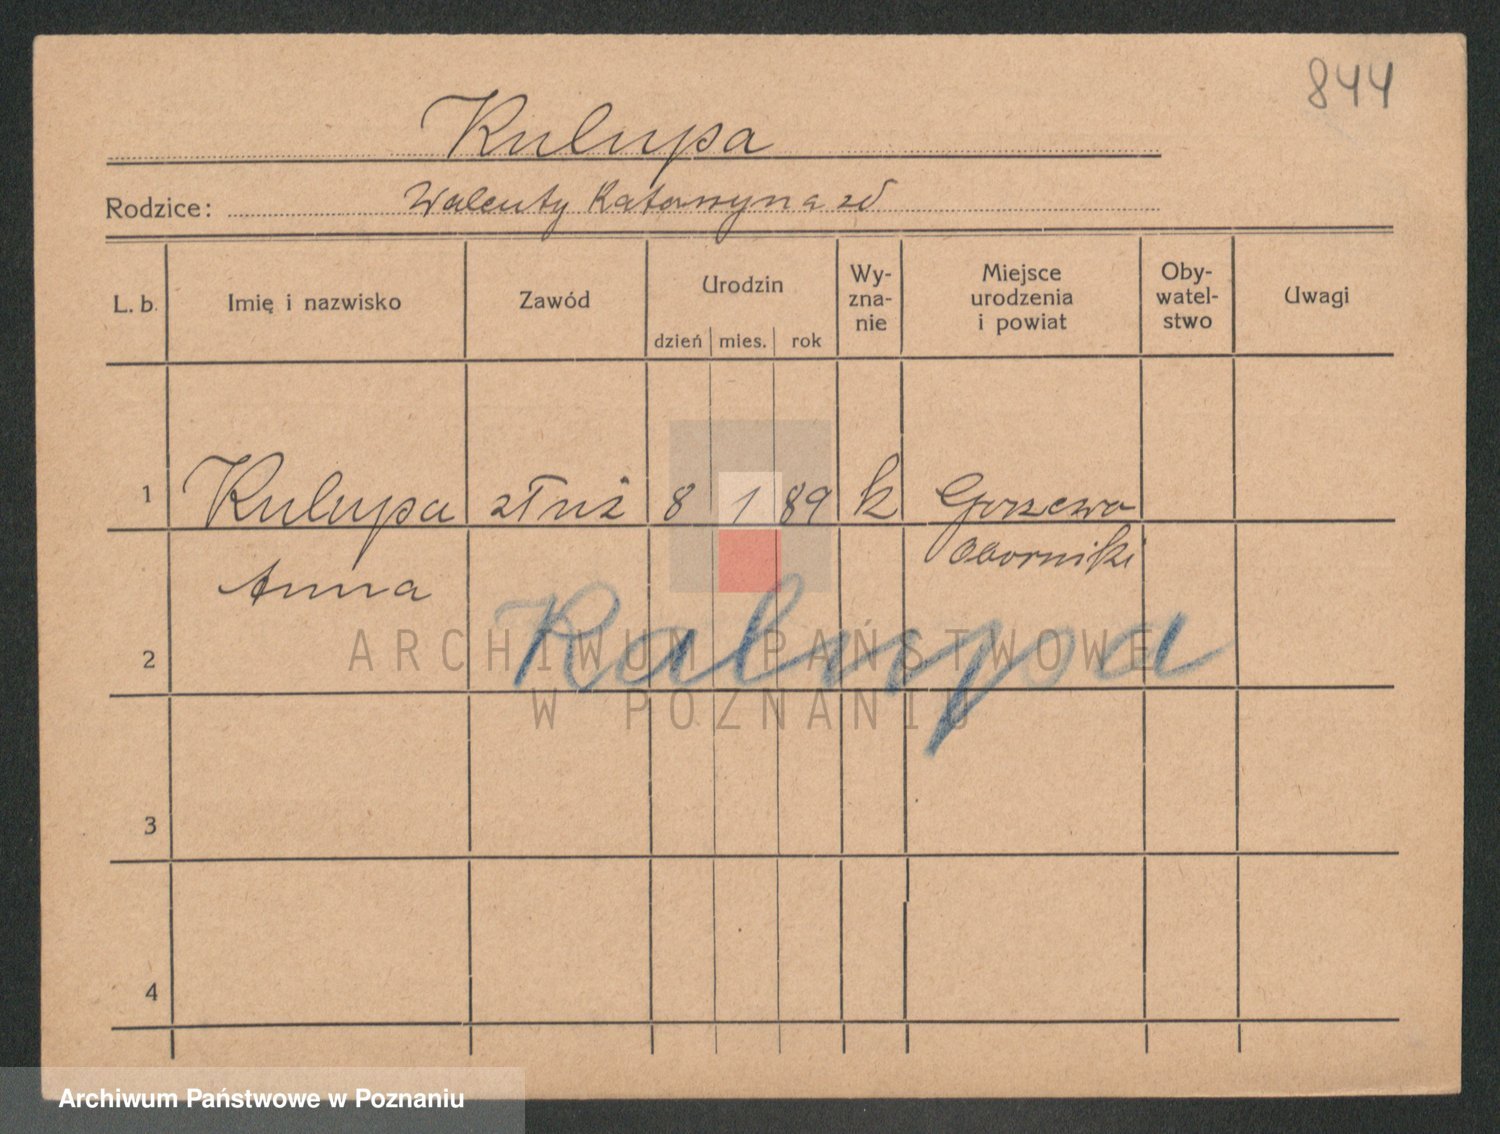 844
Kulupa
Rodzice: Walenty Katarzyna
L. b. Imię i nazwisko Zawód Urodzin dzień mies. rok Wy-zna-nie Miejsce urodzenia i powiat Oby-watel-stwo Uwagi
1 Kulupa 8 1 89 k Gorzewo
Oborniki
Anna
Kalupa
2
ARCHIWUM PAŃSTWOWE
W POZNANIU
3
4
Archiwum Państwowe w Poznaniu